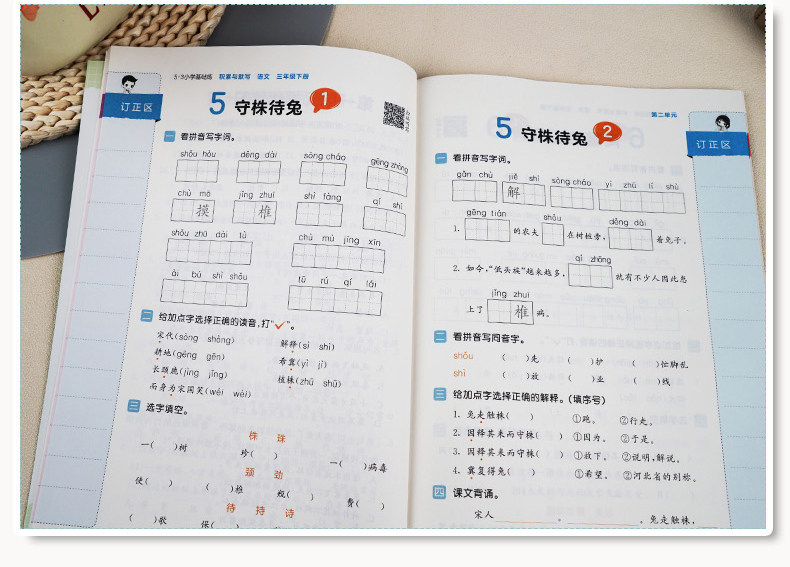 5·3小学基础练 积累与默写 语文 三年级下册
订正区
5 守株待兔 1
一 看拼音写字词。
shǒu hòu děng dài sòng cháo gēng zhòng
chù mō jǐng zhuī shì fàng qí shí
摸 椎
shǒu zhū dài tù chù mù jīng xīn
ài bú shì shǒu tū rú qí lái
二 给加点字选择正确的读音,打“✓”。
宋代(sòng shòng) 解释(sì shì)
耕地(gēng gēn) 希冀(yì jì)
长颈鹿(jǐng jīng) 植株(zhū shū)
而身为宋国笑(wéi wèi)
三 选字填空。
株 珠
一( )树 珍( ) 一( )病毒
颈 劲
使( ) ( )椎 瓶( ) 费( )
待 持 诗
( )歌 保( )
第二单元
订正区
5 守株待兔 2
一 看拼音写字词。
gǎn chù jiě shì sòng cháo yì zhū lì shù
解
gēng tián shǒu děng dài
1. 的农夫 在树桩旁, 着兔子。
qí zhōng
2. 如今,“低头族”越来越多, 就有不少人因此患
jǐng zhuī
上了 椎 病。
二 看拼音写同音字。
shǒu ( )先 ( )护 ( )忙脚乱
shì ( )放 ( )业 ( )线
三 给加点字选择正确的解释。(填序号)
1. 兔走触株( ) ①跑。 ②行走。
2. 因释其耒而守株( ) ①因为。 ②于是。
3. 因释其耒而守株( ) ①放下。 ②说明,解说。
4. 冀复得兔( ) ①希望。 ②河北省的别称。
四 课文背诵。
宋人 , 。兔走触株,